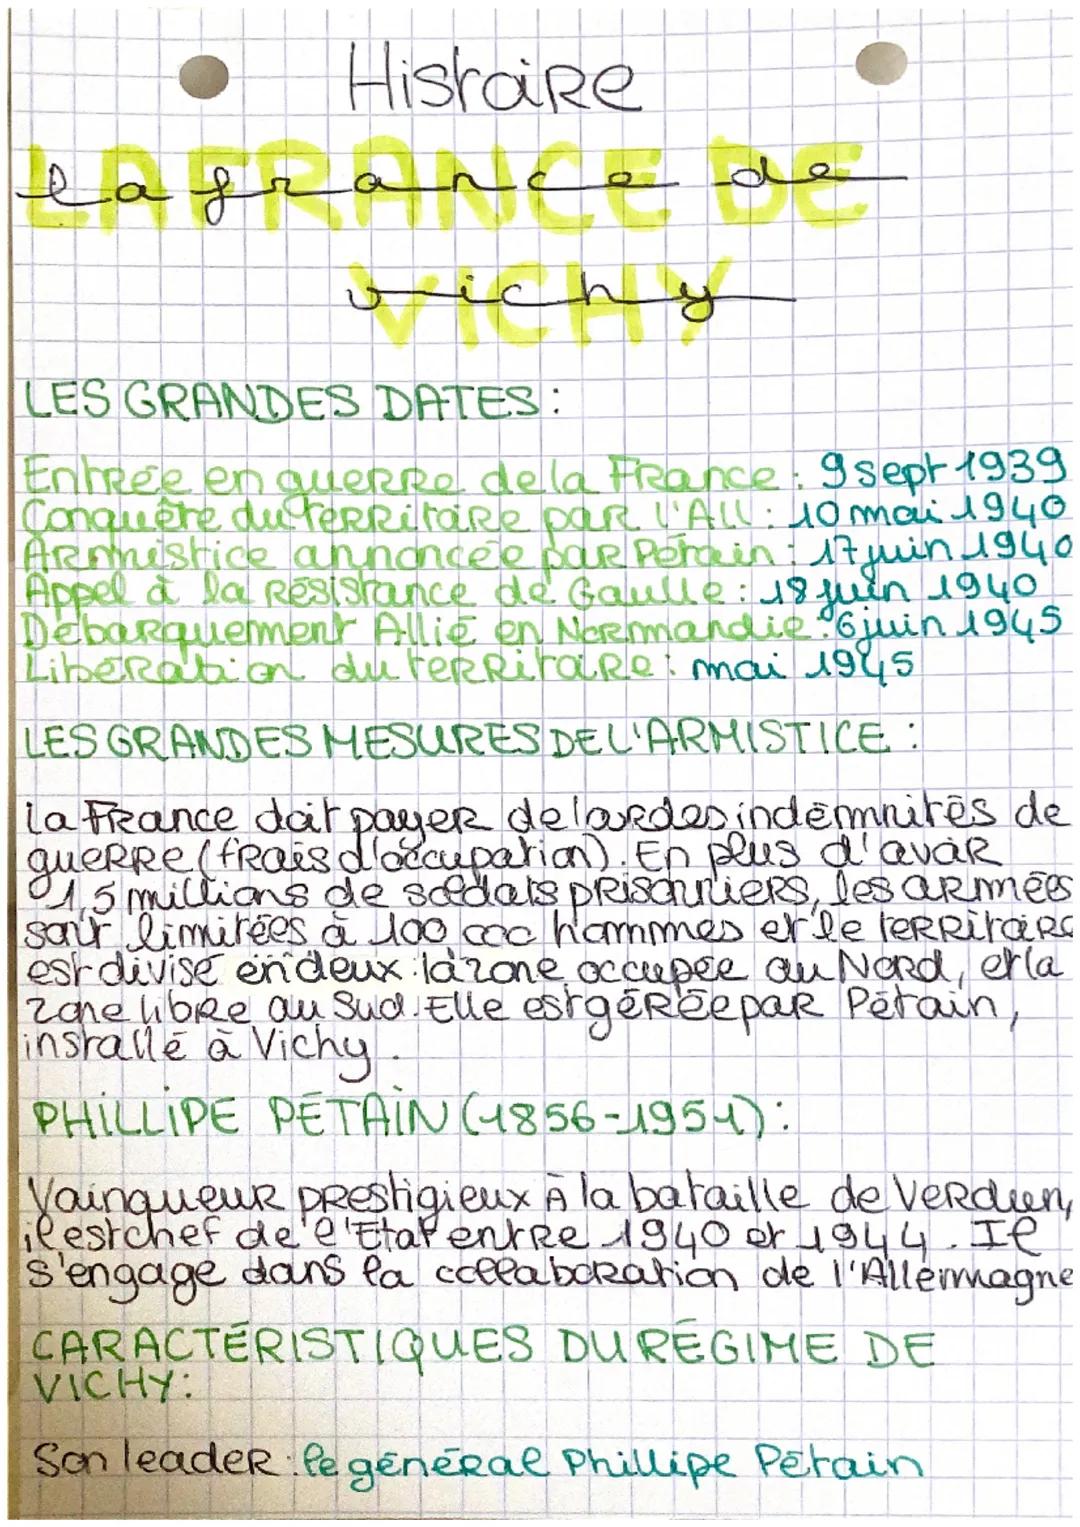 Histoire
LA FRANCE DE
la france de
VICHY
vichy
LES GRANDES DATES :
Entrée en guerre de la France : 9 sept 1939
Conquête du territoire par l'All : 10 mai 1940
Armistice annoncée par Pétain : 17 juin 1940
Appel à la Résistance de Gaulle : 18 juin 1940
Débarquement Allié en Normandie : 6 juin 1945
Libération du territoire : mai 1945
LES GRANDES MESURES DE L'ARMISTICE :
la France doit payer de lourdes indemnités de
guerre (frais d'occupation). En plus d'avoir
1,5 millions de soldats prisonniers, les armées
sont limitées à 100 000 hommes et le territoire
est divisé en deux : la zone occupée au Nord, et la
zone libre au Sud. Elle est gérée par Pétain,
installé à Vichy.
PHILLIPE PÉTAIN (1856-1951) :
Vainqueur prestigieux À la bataille de Verdun,
il est chef de l'État entre 1940 et 1944. Il
s'engage dans la collaboration de l'Allemagne
CARACTÉRISTIQUES DU RÉGIME DE
VICHY :
Son leader : le général Phillipe Pétain